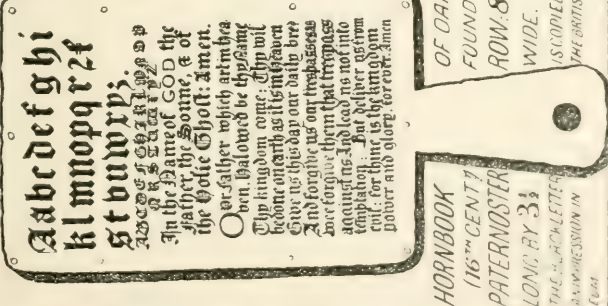 Aabcdefghi
klmnopqrꝛſ
stvuwxyz.
ABCDEFGHIKLMNOP
QRSTUWXYZ
In the Name of GOD the
Father, the Sonne, & of
the Holie Ghost: Amen.
Our father which art in hea
ven. Halowed be thy name
Thy kingdom come: Thy wil
be done on earth as it is in heaven
Give us this day our daily bred
And forgive us our trespasses as
wee forgive them that trespass
against us And lead us not into
temptation: But deliver us from
evil: for thine is the kingdom
power and glory for ever. Amen
HORNBOOK OF OAK
(16TH CENTY FOUND
PATERNOSTER ROW: 8
LONG BY 3½ WIDE.
THE BLACKLETTER IS COPIED
IMPRESSION IN THE BRITISH